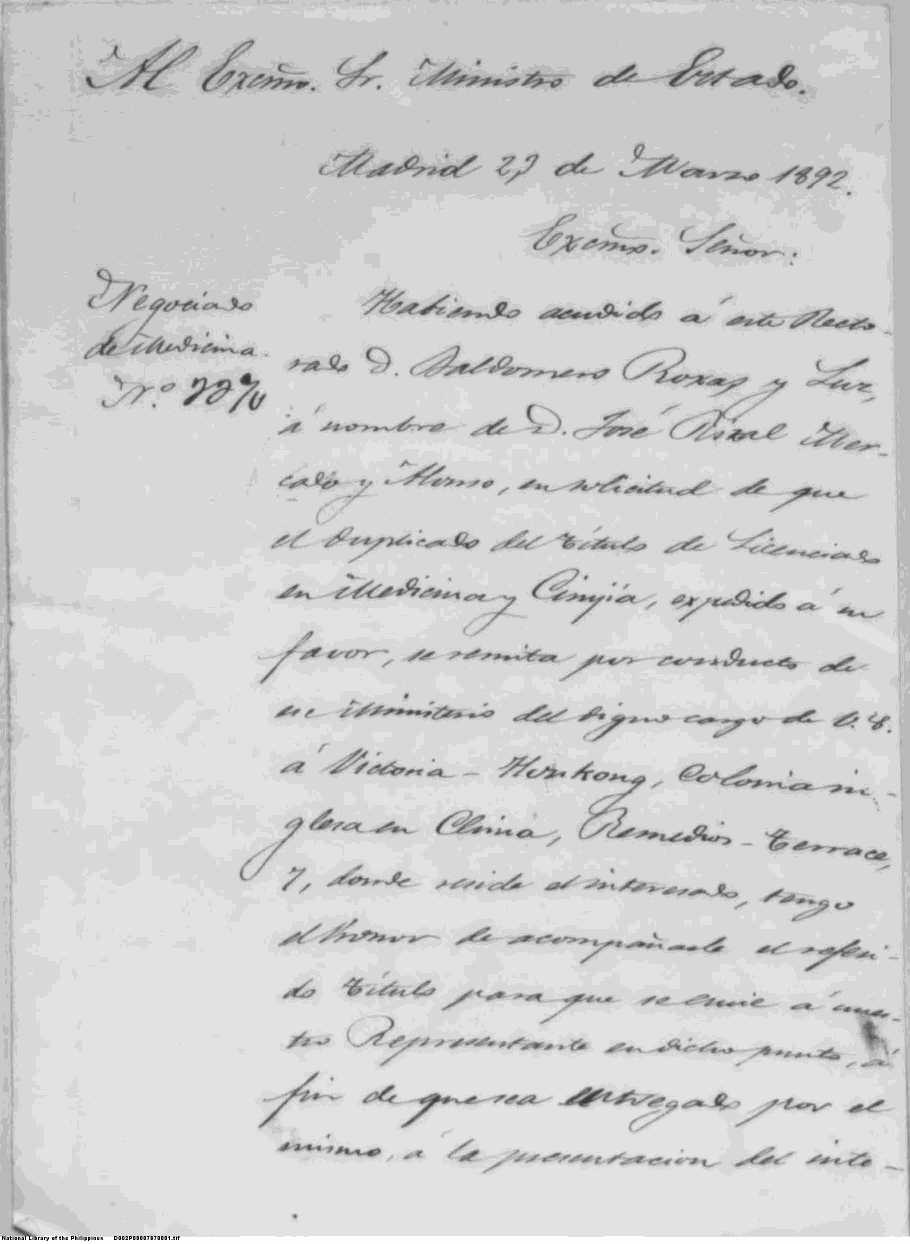 Al Excmo. Sr. Ministro de Estado.
Madrid 27 de Marzo 1892.
Excmo. Señor:
Negociado
de Medicina.
Nº
Habiendo acudido á este Recto-
rado D. Baldomero Roxas y Luz,
á nombre de D. José Rizal Mer-
cado y Alonso, en solicitud de que
el duplicado del título de Licenciado
en Medicina y Cirujía, expedido á su
favor, se remita por conducto de
ese Ministerio del digno cargo de V. E.
á Victoria - Honkong, Colonia in-
glesa en China, Remedios - Terrace,
7, donde reside el interesado, tengo
el honor de acompañarle el referi-
do título para que se envie á nues-
tro Representante en dicho punto, á
fin de que sea entregado por el
mismo, á la presentacion del inte-
National Library of the Philippines D002P00007070001.tif